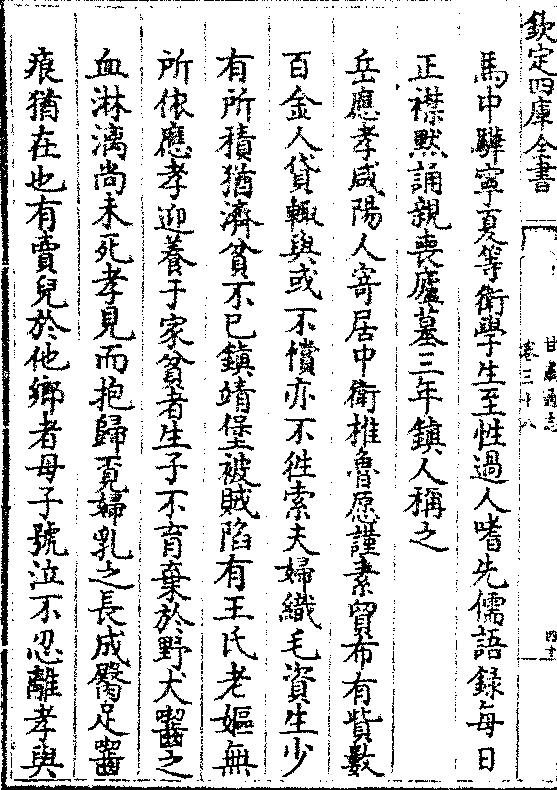 欽定四庫全書
甘肅通志
卷三十八
馬中驊寧夏等衛學生至性過人嗜先儒語錄每日
正襟黙誦親喪廬墓三年鎮人稱之
岳應孝咸陽人寄居中衛椎魯愿謹素貿布有貲數
百金人貸輒與或不償亦不徃索夫婦織毛資生少
有所積猶濟貧不已鎮靖堡被賊陷有王氏老嫗無
所依應孝迎養于家貧者生子不育棄於野犬齧之
血淋漓尚未死孝見而抱歸覔婦乳之長成臀足齧
痕猶在也有賣兒於他鄉者母子號泣不忍離孝與